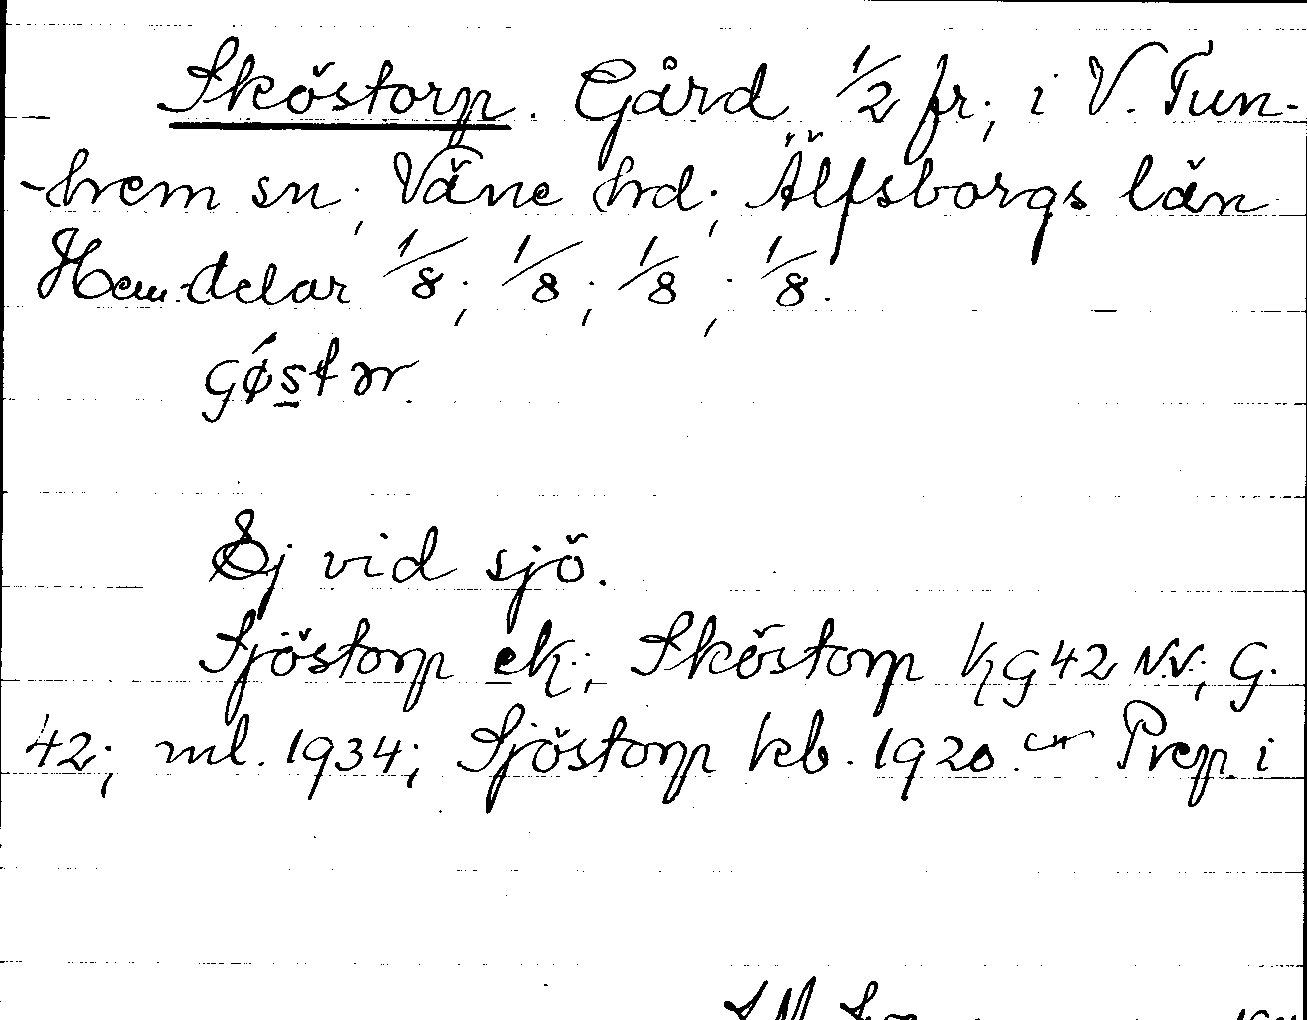 Sköstorp. Gård 1/2 fr; i V. Tun-
-hem sn; Väne hd; Älfsborgs län
Hem.delar 1/8; 1/8; 1/8; 1/8.
gǿstər.
Ej vid sjö.
Sjöstorp ek.; Sköstorp kg 42 N.V.; G.
42; ml. 1934; Sjöstorp keb. 1920. Prep. i